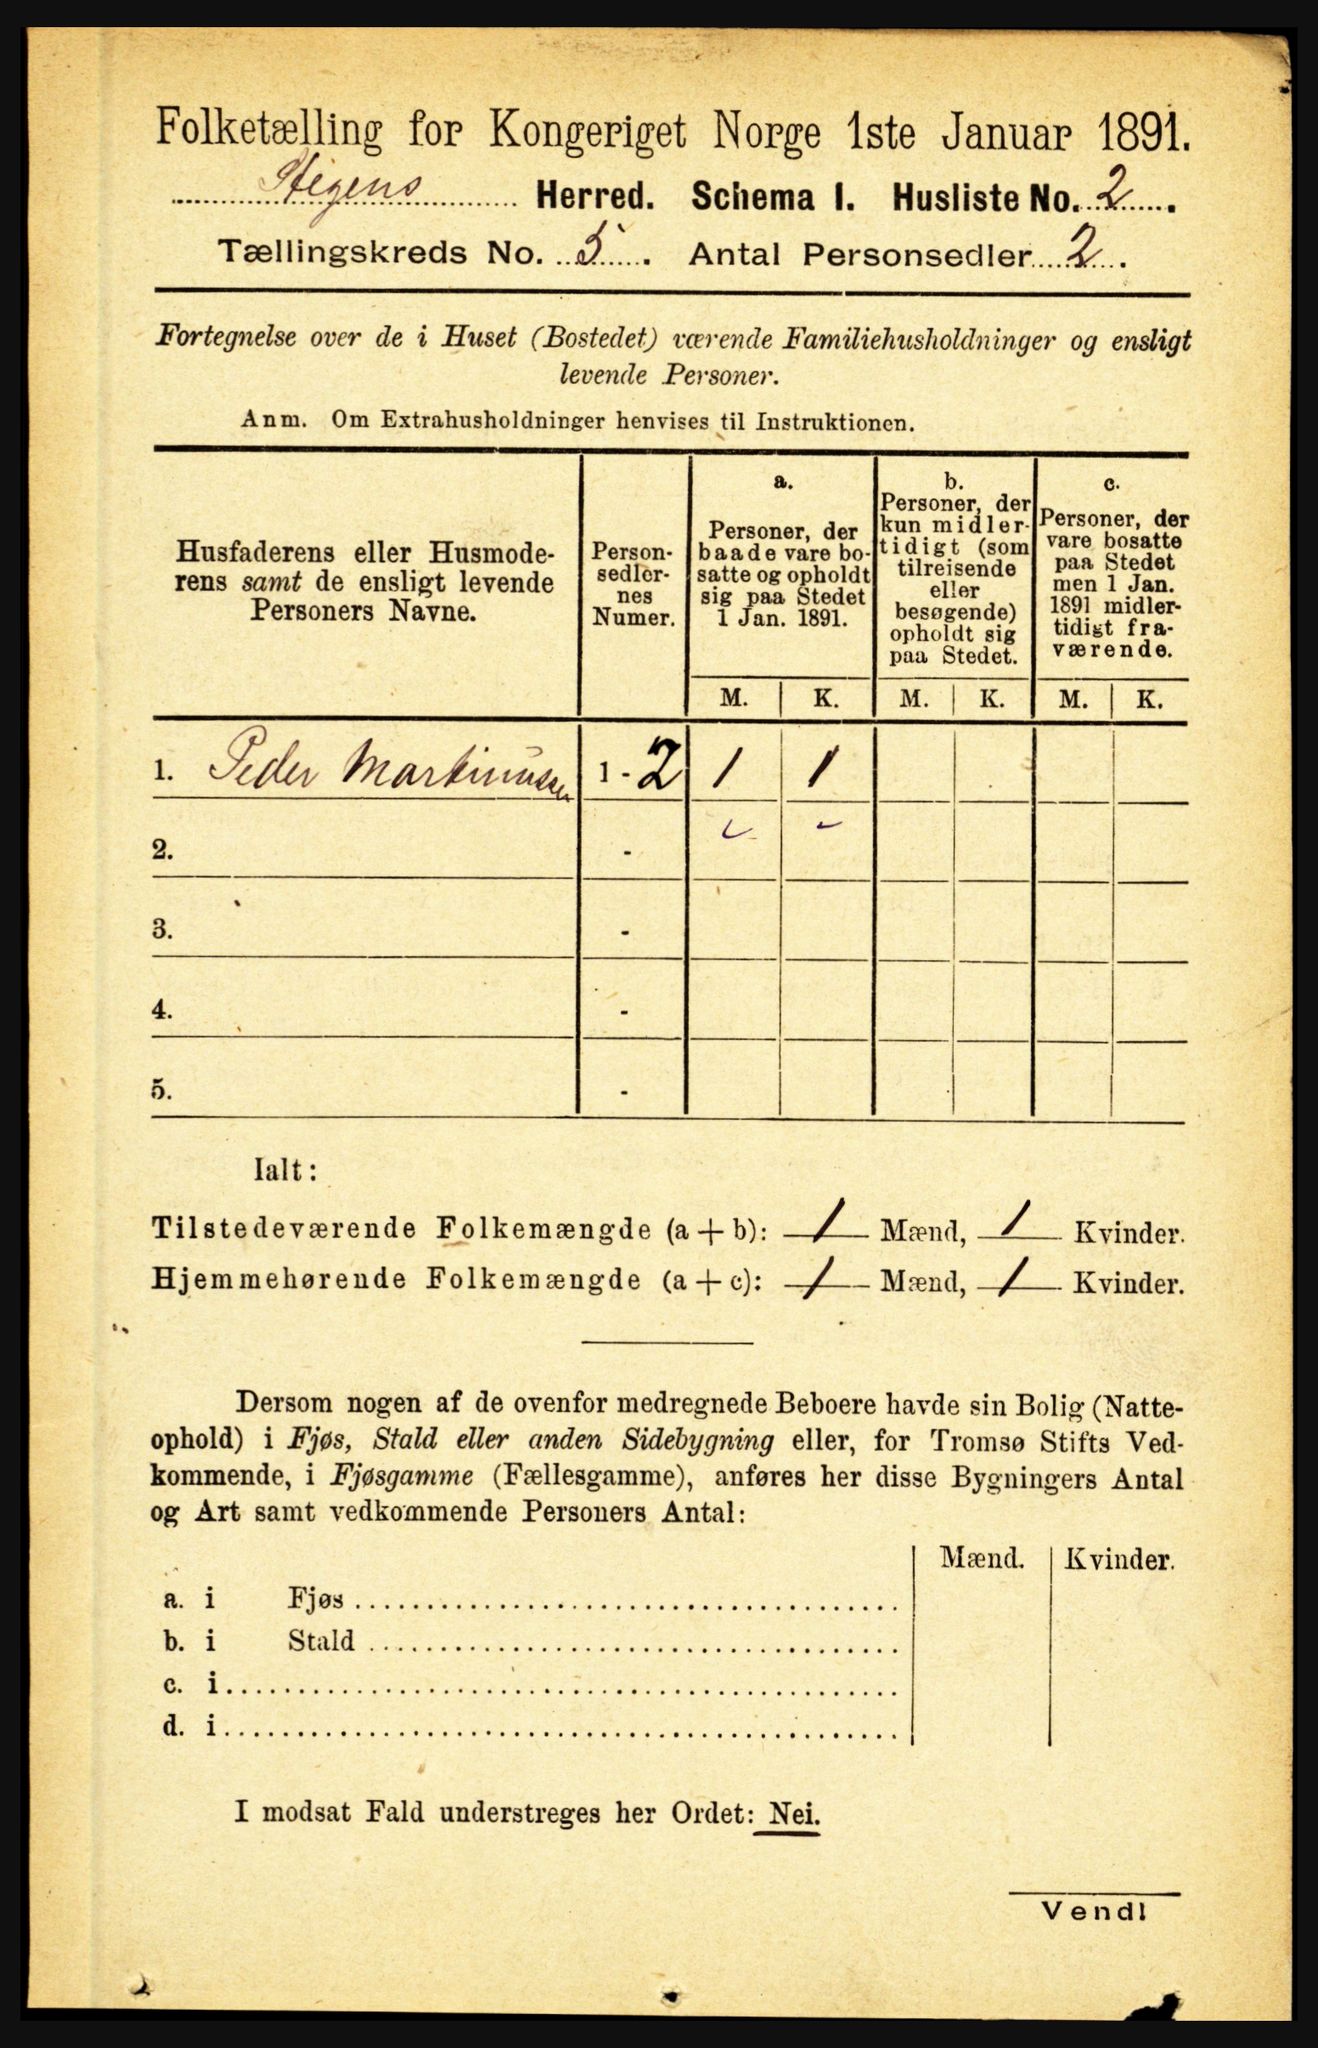 Folketælling for Kongeriget Norge 1ste Januar 1891.
Steigens Herred. Schema I. Husliste No. 2.
Tællingskreds No. 5. Antal Personsedler 2.
Fortegnelse over de i Huset (Bostedet) værende Familiehusholdninger og ensligt
levende Personer.
Anm. Om Extrahusholdninger henvises til Instruktionen.
Husfaderens eller Husmode-
rens samt de ensligt levende
Personers Navne.
Person-
sedler-
nes
Numer.
a.
Personer, der
baade vare bo-
satte og opholdt
sig paa Stedet
1 Jan. 1891.
b.
Personer, der
kun midler-
tidigt (som
tilreisende
eller
besøgende)
opholdt sig
paa Stedet.
c.
Personer, der
vare bosatte
paa Stedet
men 1 Jan.
1891 midler-
tidigt fra-
værende.
M. K. M. K. M. K.
1. Peder Martinussen 1 - 2 1 1
2. -
3. -
4. -
5. -
Ialt:
Tilstedeværende Folkemængde (a + b): 1 Mænd, 1 Kvinder.
Hjemmehørende Folkemængde (a + c): 1 Mænd, 1 Kvinder.
Dersom nogen af de ovenfor medregnede Beboere havde sin Bolig (Natte-
ophold) i Fjøs, Stald eller anden Sidebygning eller, for Tromsø Stifts Ved-
kommende, i Fjøsgamme (Fællesgamme), anføres her disse Bygningers Antal
og Art samt vedkommende Personers Antal:
Mænd. Kvinder.
a. i Fjøs
b. i Stald
c. i
d. i
I modsat Fald understreges her Ordet: Nei.
Vend!